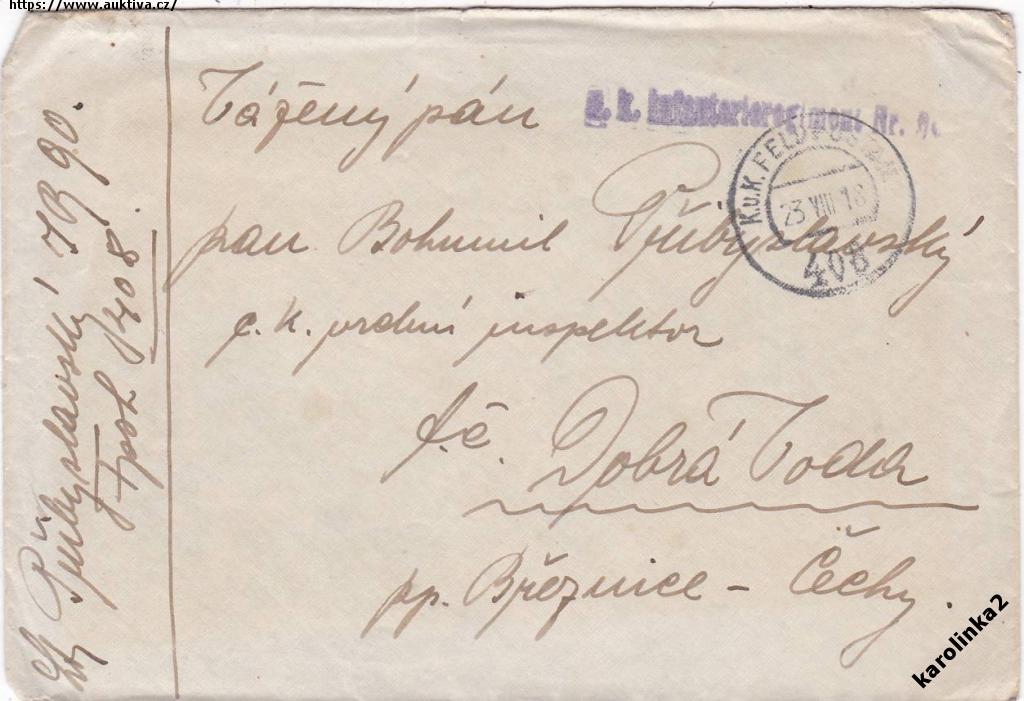 https://www.auktiva.cz/
Vážený pán
k. k. Infanterieregiment Nr.
K.u.K. FELDPOSTAMT
23 VIII 18
408
pan Bohumil Přibyslavský
c. k. vrchní inspektor
Dobrá Voda
pp. Březnice - Čechy.
Přibyslavský IR 90.
Fpost 408
karolinka2